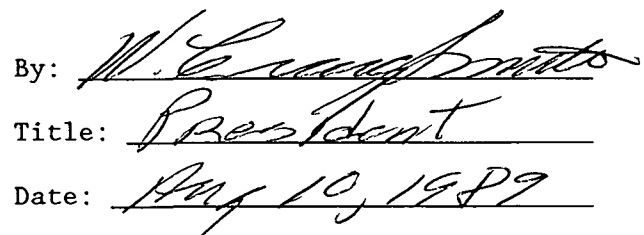 By: W. Craig Smith
Title: President
Date: Aug 10, 1989